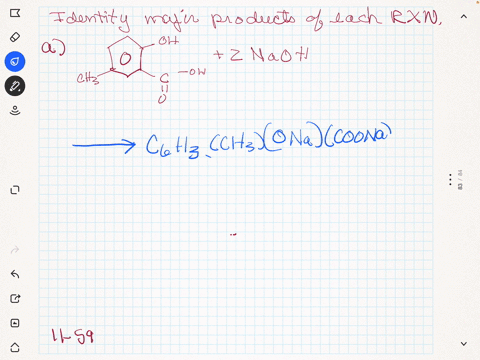 Identity major products of each RXN.
a)
OH
+ 2 NaOH
CH3
C
-OH
O
→ C6H3(CH3)(ONa)(COONa)
11-59